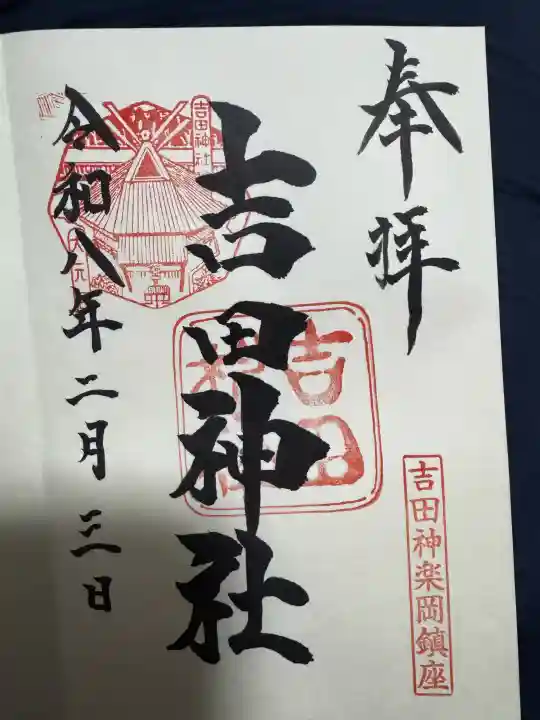 奉拝
吉田神楽岡鎮座
吉田神社
吉田神社
吉田神社
大元
令和八年二月三日